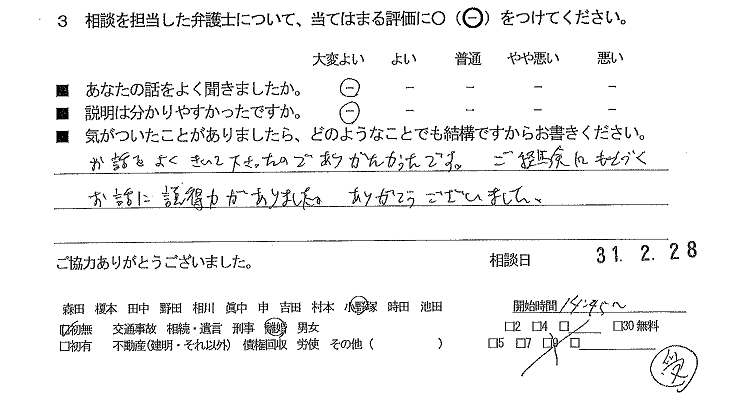 3 相談を担当した弁護士について、当てはまる評価に○（㊀）をつけてください。
大変よい よい 普通 やや悪い 悪い
■ あなたの話をよく聞きましたか。 － － － － －
■ 説明は分かりやすかったですか。 － － － － －
■ 気がついたことがありましたら、どのようなことでも結構ですからお書きください。
お話をよくきいて下さったのでありがたかったです。 ご経験にもとづく
お話に説得力がありました。 ありがとうございました。
ご協力ありがとうございました。 相談日 31. 2. 28
森田 榎本 田中 野田 相川 眞中 申 吉田 村本 小野塚 時田 池田 開始時間 14:45～
□初無 交通事故 相続・遺言 刑事 離婚 男女 □2 □4 □ □30無料
□初有 不動産(建明・それ以外) 債権回収 労使 その他（ ） □5 □7 □9 □
受